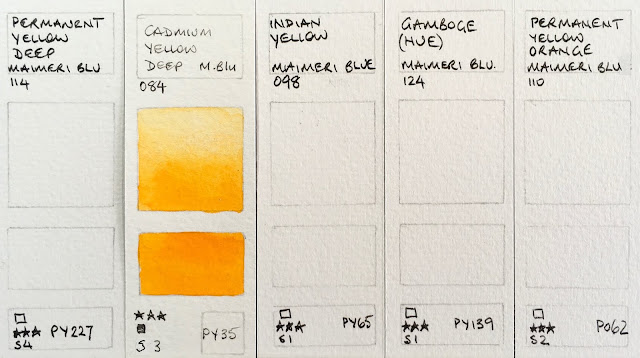 PERMANENT
YELLOW
DEEP
MAIMERI BLU
114
PY227
S4
CADMIUM
YELLOW
DEEP M.BLU
084
S 3
PY35
INDIAN
YELLOW
MAIMERI BLUE
098
PY65
S1
GAMBOGE
(HUE)
MAIMERI BLU.
124
PY139
S1
PERMANENT
YELLOW
ORANGE
MAIMERI BLU
110
PO62
S2